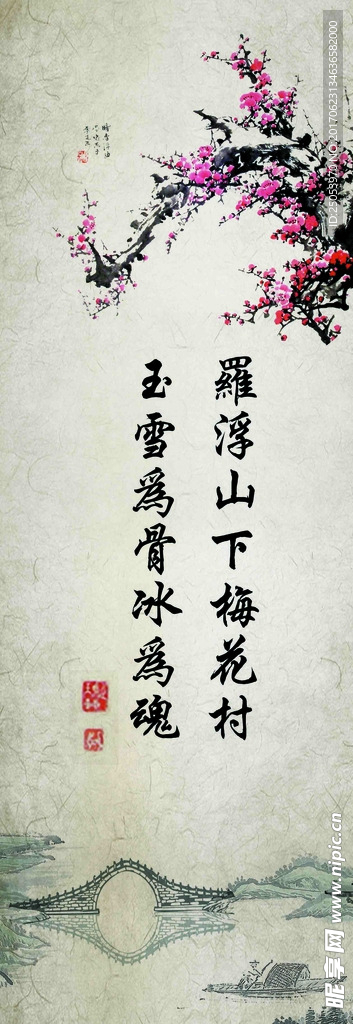 羅浮山下梅花村
玉雪為骨冰為魂
昵享网 www.nipic.cn